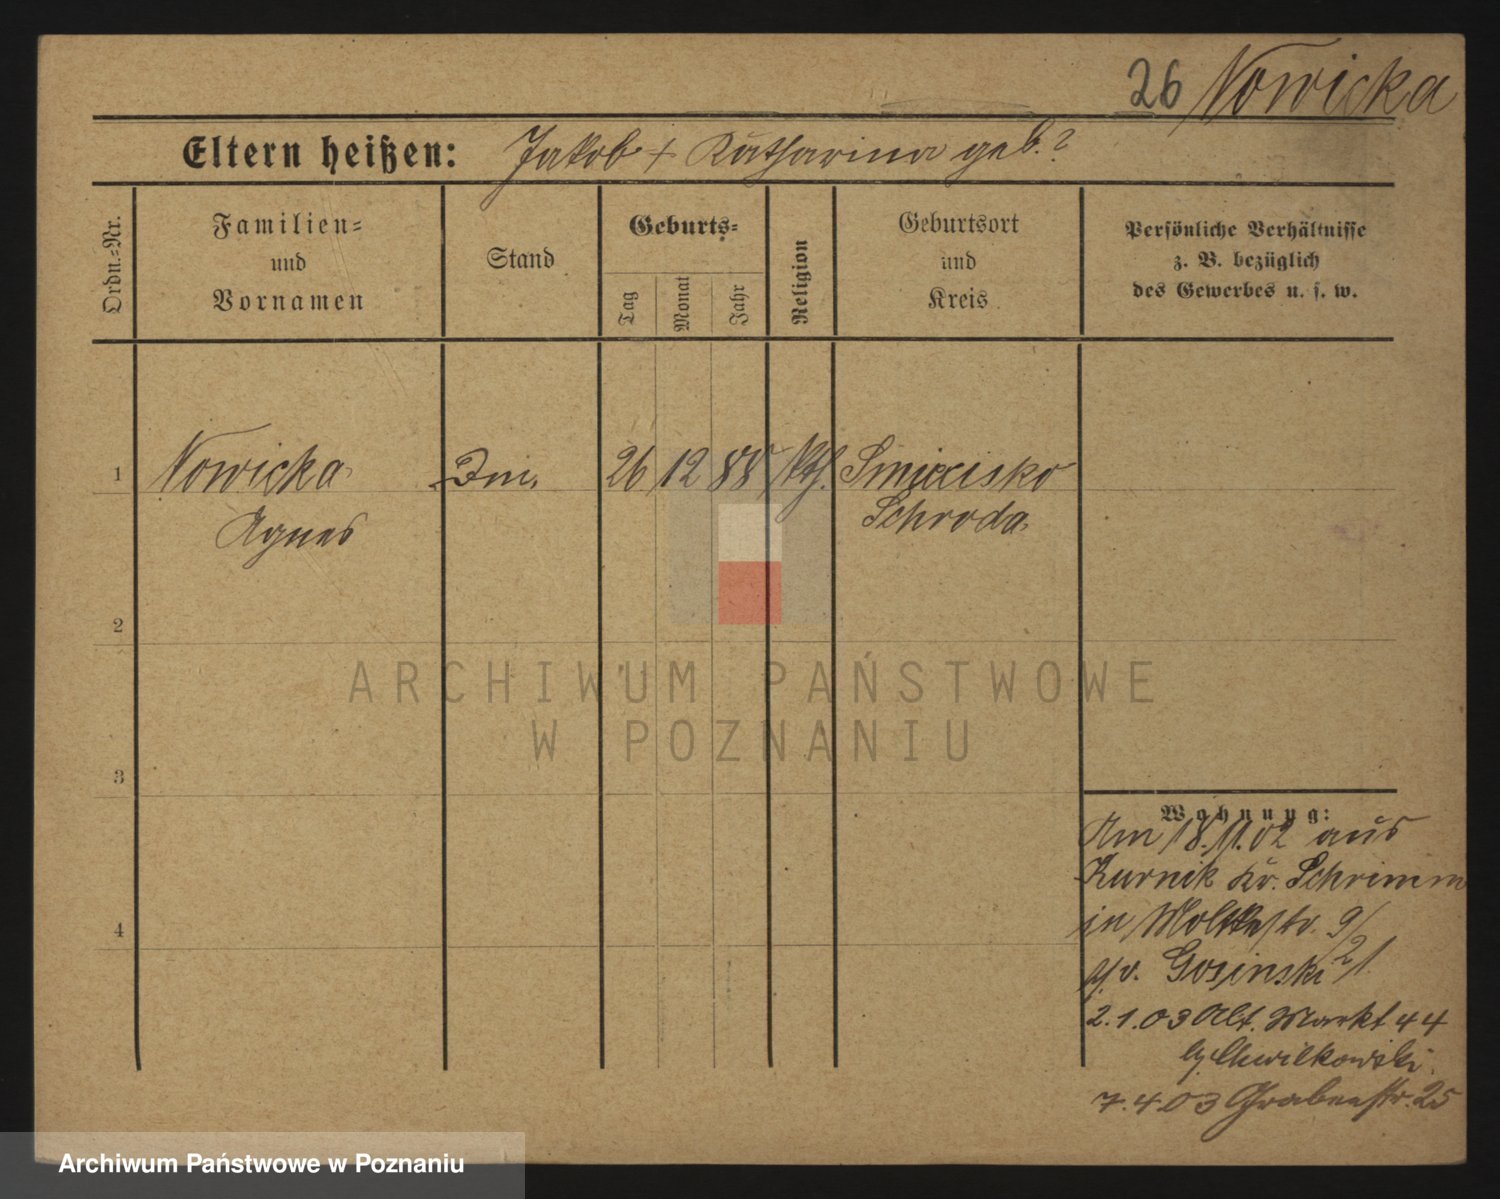 26 Nowicka
Eltern heißen: Jakob + Katharina geb. ?
Ordn.=Nr.
Familien=
und
Vornamen
Stand
Geburts=
Tag
Monat
Jahr
Religion
Geburtsort
und
Kreis
Persönliche Verhältnisse
z. B. bezüglich
des Gewerbes u. s. w.
1 Nowicka 26 12 88 kth.
Agnes Schroda
2
3
4
ARCHIWUM PAŃSTWOWE
W POZNANIU
Wohnung:
Am 18.11.02 aus
Kurnik Kr. Schrimm
in Moltkestr. 9/
Gosinski 21
2.1.03 Alt. Markt 44
Chwilkowski.
7.4.03 Grabenstr. 25
Archiwum Państwowe w Poznaniu